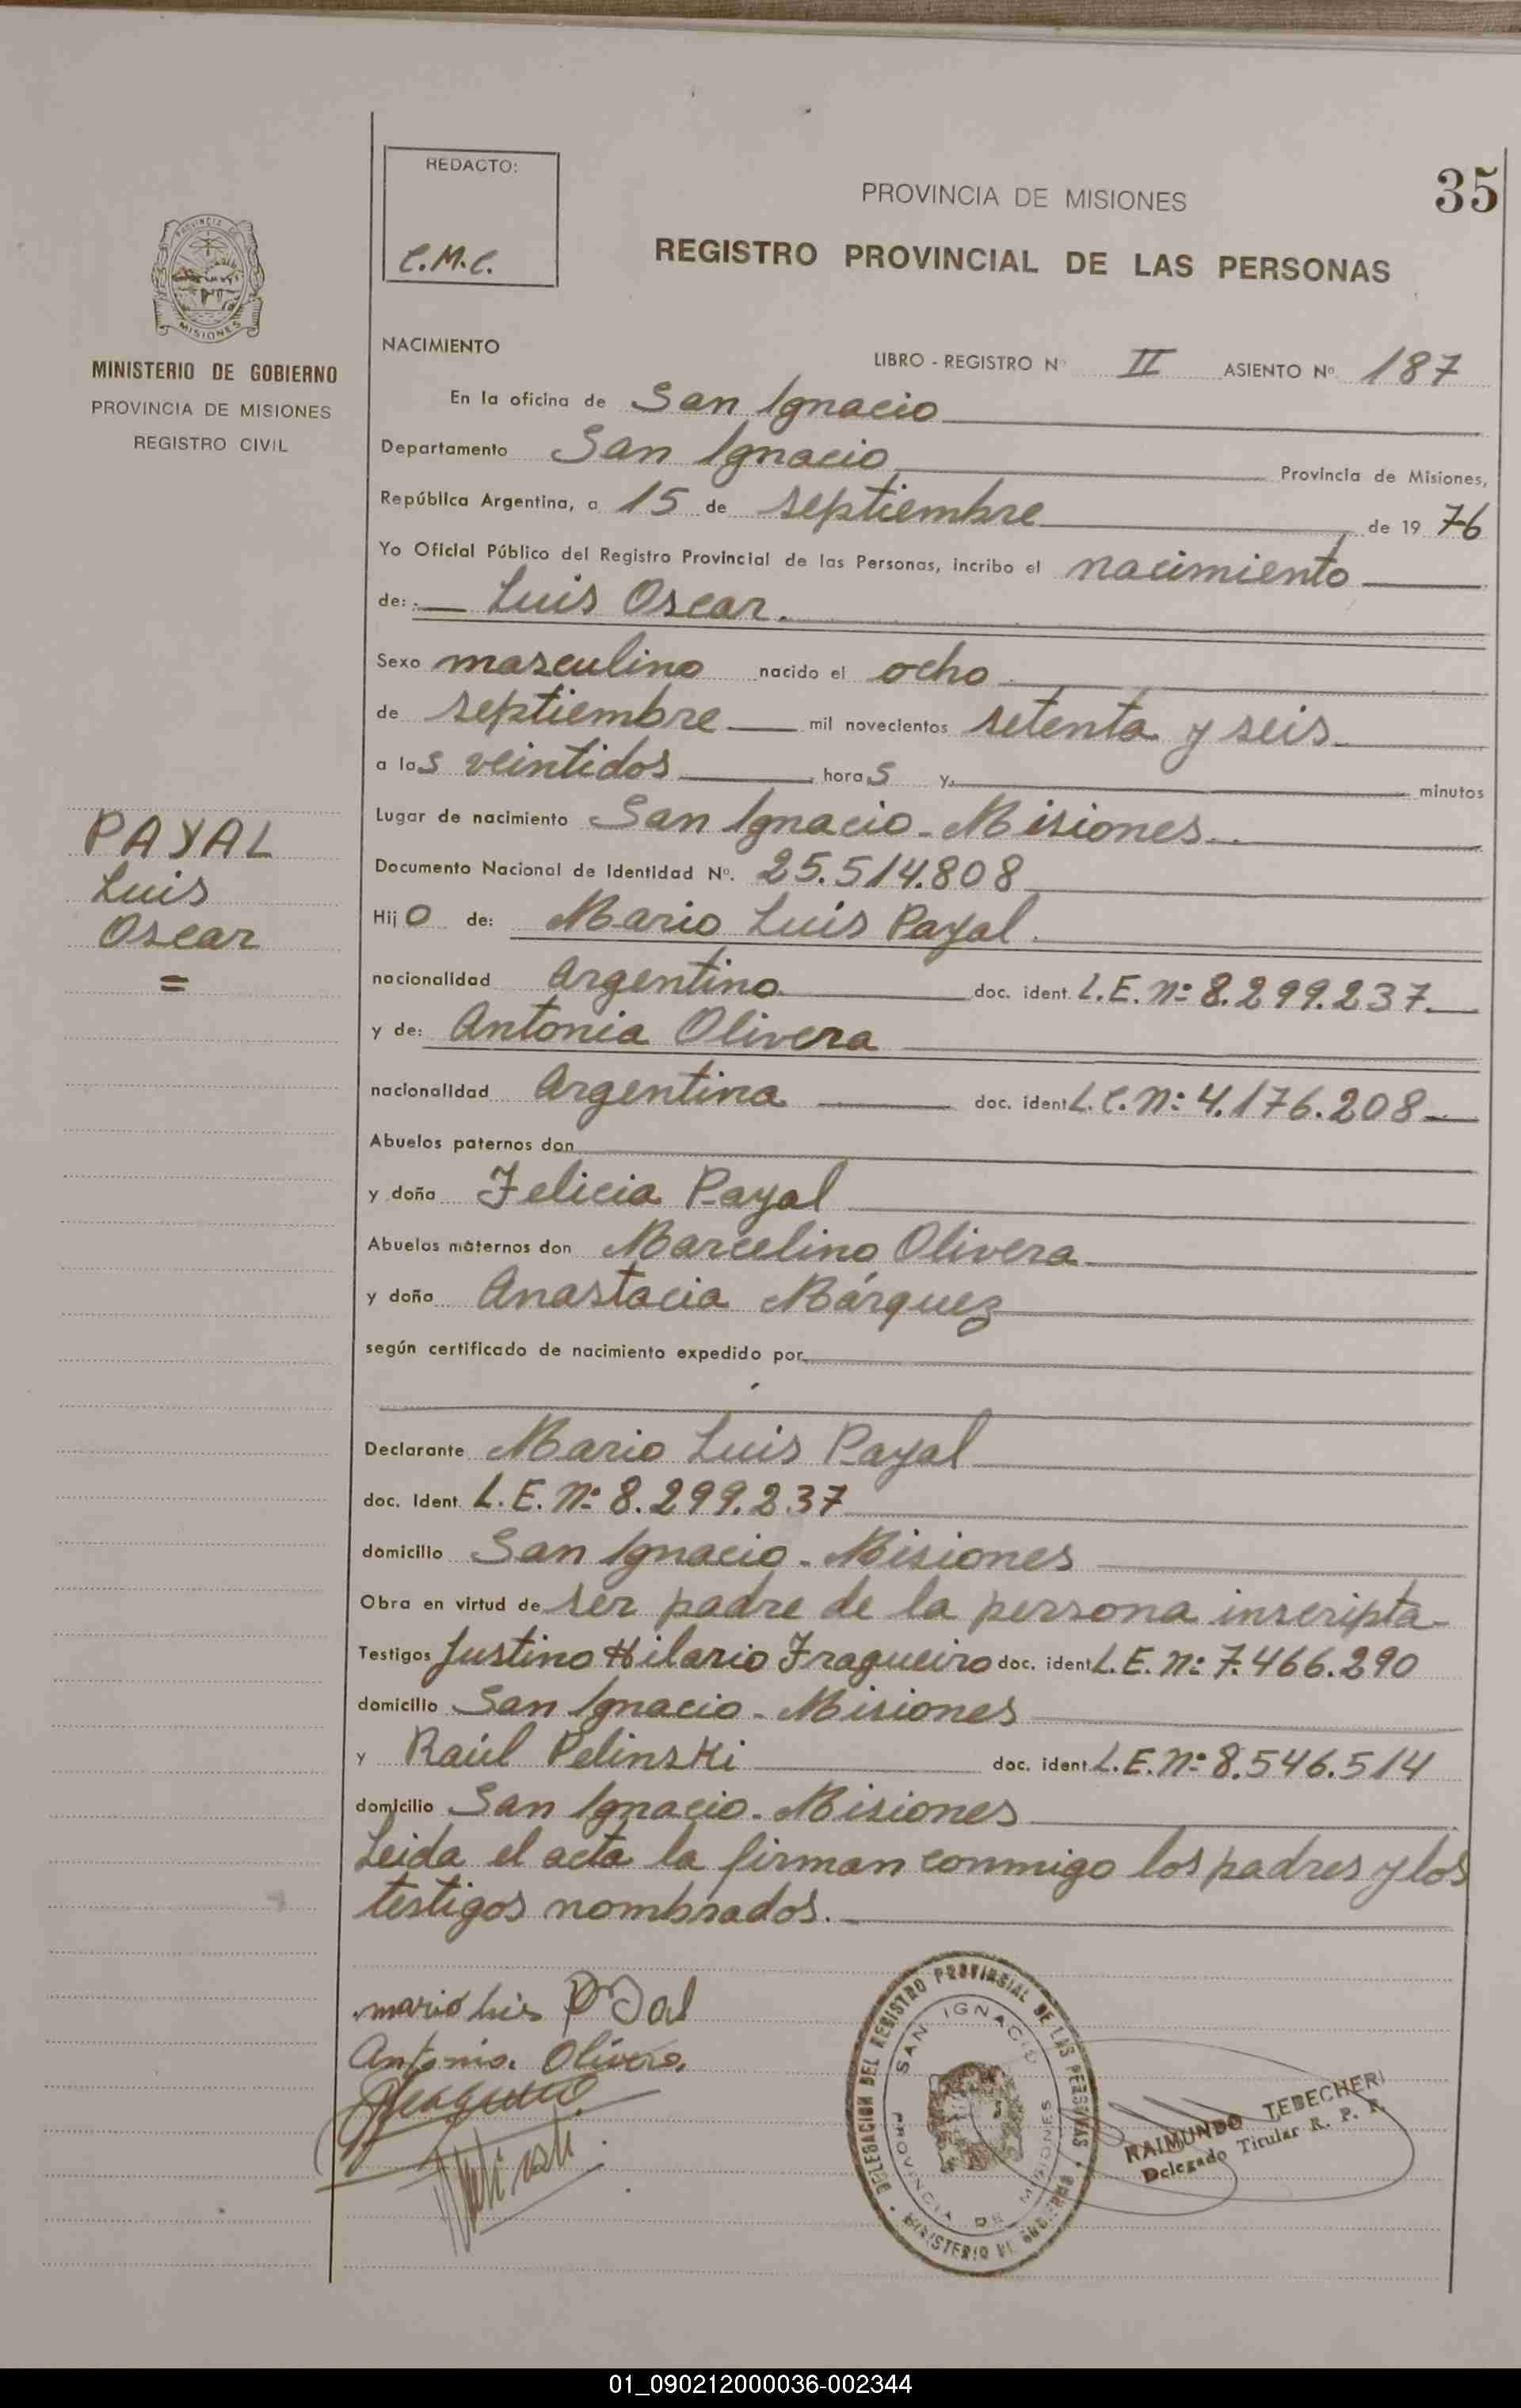 REDACTO:
C.M.C.
PROVINCIA DE MISIONES
35
REGISTRO PROVINCIAL DE LAS PERSONAS
PROVINCIA DE
MISIONES
MINISTERIO DE GOBIERNO
PROVINCIA DE MISIONES
REGISTRO CIVIL
NACIMIENTO
LIBRO - REGISTRO Nº II ASIENTO Nº 187
En la oficina de San Ignacio
Departamento San Ignacio Provincia de Misiones,
República Argentina, a 15 de septiembre de 19 76
Yo Oficial Público del Registro Provincial de las Personas, incribo el nacimiento
de: Luis Oscar.
Sexo masculino nacido el ocho
de septiembre mil novecientos setenta y seis
a las veintidos horas y minutos
Lugar de nacimiento San Ignacio - Misiones
PAYAL
Luis
Oscar
=
Documento Nacional de Identidad Nº. 25.514.808
Hijo de: Mario Luis Payal.
nacionalidad Argentino doc. ident. L.E. nº 8.299.237
y de: Antonia Olivera
nacionalidad Argentina doc. ident L.C. nº 4.176.208
Abuelos paternos don
y doña Felicia Payal
Abuelos maternos don Marcelino Olivera
y doña Anastacia Márquez
según certificado de nacimiento expedido por
Declarante Mario Luis Payal
doc. Ident. L.E. nº 8.299.237
domicilio San Ignacio - Misiones
Obra en virtud de ser padre de la persona inscripta
Testigos Justino Hilario Fragueiro doc. ident L.E. nº 7.466.290
domicilio San Ignacio - Misiones
y Raúl Pelinski doc. ident. L.E. nº 8.546.514
domicilio San Ignacio - Misiones
Leida el acta la firman conmigo los padres y los
testigos nombrados.
mario luis Payal
Antonia Olivera
DELEGACION DEL REGISTRO PROVINCIAL DE LAS PERSONAS
SAN IGNACIO
PROVINCIA DE MISIONES
MINISTERIO DE GOBIERNO
RAIMUNDO TEDECHERI
Delegado Titular R. P. P.
01_090212000036-002344